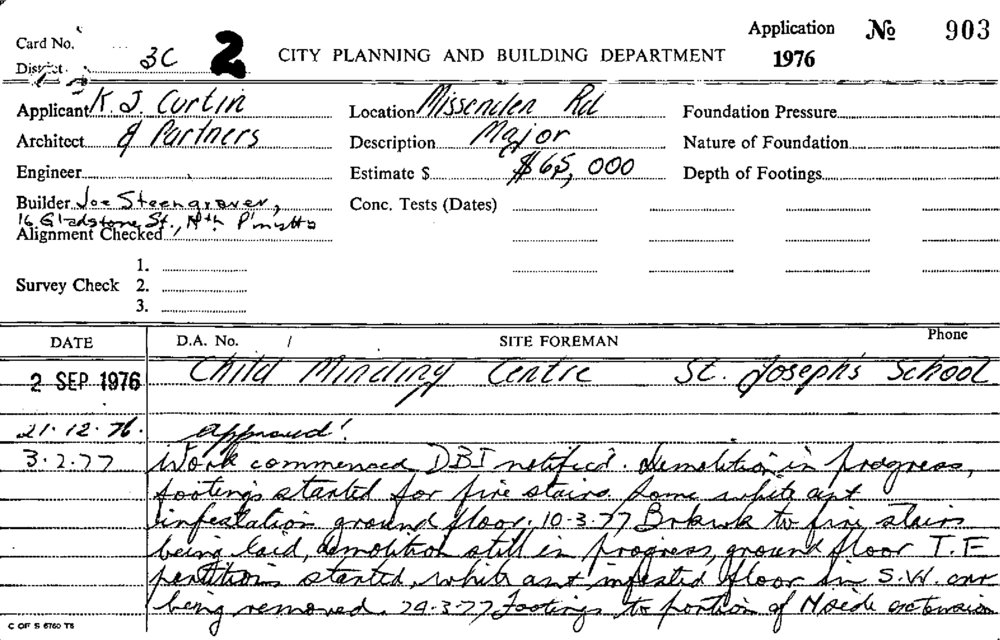 Card No. 3C 2 CITY PLANNING AND BUILDING DEPARTMENT Application 1976 No 903
District
Applicant K. J. Curtin Location Missenden Rd Foundation Pressure
Architect & Partners Description Major Nature of Foundation
Engineer Estimate $ $65,000 Depth of Footings
Builder Joe Steengraver, Conc. Tests (Dates)
16 Gladstone St., Nth P'matta
Alignment Checked
1.
Survey Check 2.
3.
DATE D.A. No. / SITE FOREMAN Phone
2 SEP 1976 Child Minding Centre St. Joseph's School
21.12.76. approved!
3.2.77 Work commenced DBI notified. demolition in progress,
footings started for fire stairs. Some white ant
infestation ground floor. 10-3-77 Brkwk to fire stairs
being laid, demolition still in progress, ground floor T.F
partitions started, white ant infested floor in S.W. cnr
being removed. 29-3-77 Footings to portion of Nside extension
C OF S 6760 TS